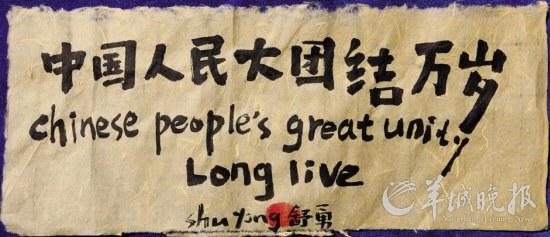 中国人民大团结万岁
chinese people's great unity
Long live
shu yong 舒勇
羊城晚报
Yangcheng Evening News